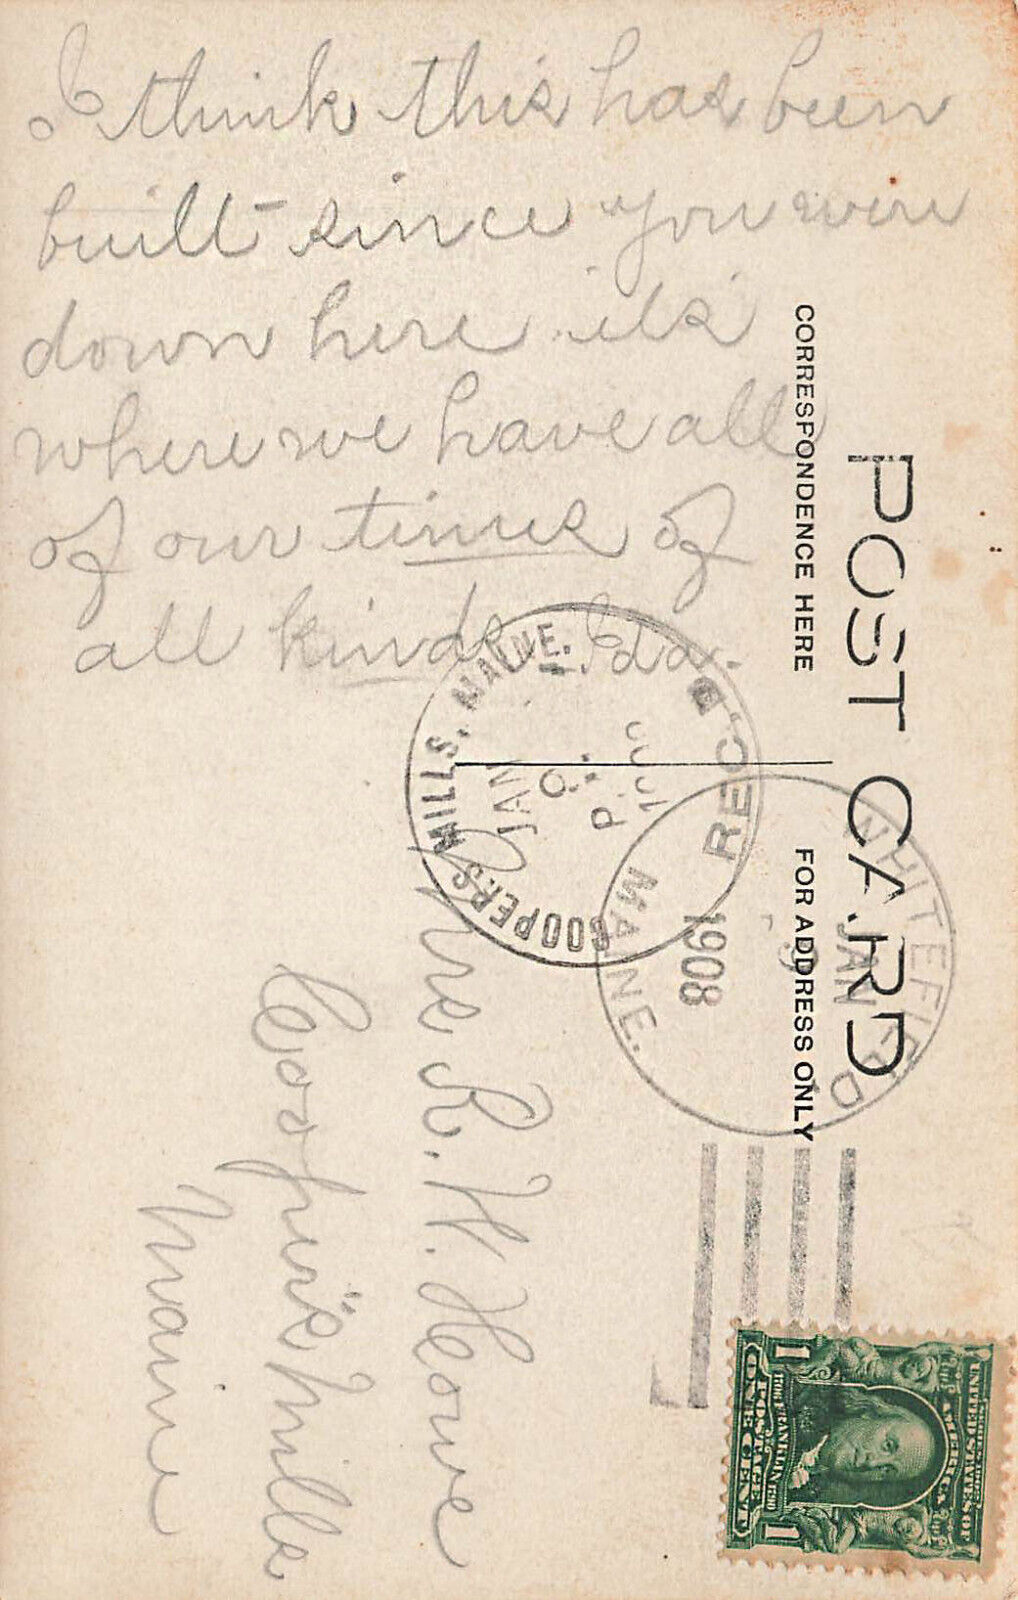 I think this has been
built since you were
down here it's
where we have all
of our times of
all kinds. Ida.
POST CARD
CORRESPONDENCE HERE
FOR ADDRESS ONLY
COOPERS MILLS, MAINE.
JAN
9
P
1908
REC'D.
WHITEFIELD
JAN
9
1908
MAINE.
Mrs R. H. Howe
Cooper's Mills
Maine
SERIES 1902
UNITED STATES OF
AMERICA
1706 FRANKLIN 1790
POSTAGE
1 ONE CENT 1